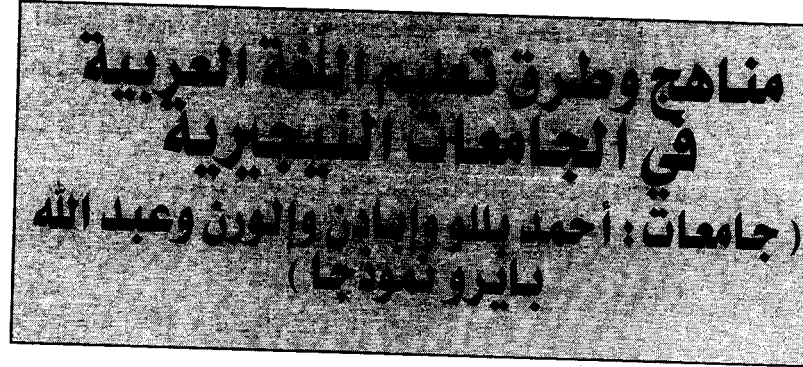 مناهج وطرق تعليم اللغة العربية
في الجامعات النيجيرية
( جامعات : أحمد بللو وإبادن وإلورن وعبد الله
بايرو نموذجا )